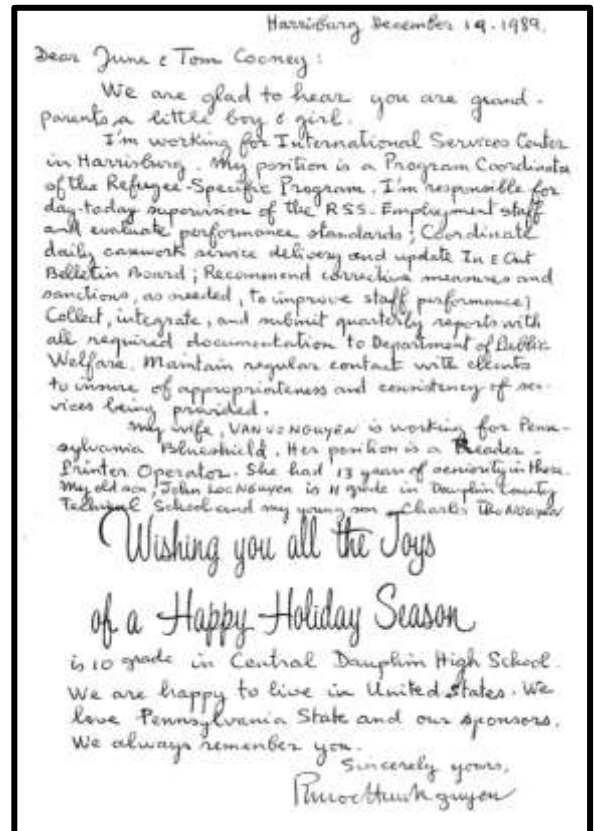 Harrisburg December 19 - 1989.
Dear June & Tom Cooney :
We are glad to hear you are grand-
parents, a little boy & girl.
I'm working for International Services Center
in Harrisburg. My position is a Program Coordinator
of the Refugee-Specific Program. I'm responsible for
day-today supervision of the RSS-Employment staff
and evaluate performance standards ; Coordinate
daily casework service delivery and update In & Out
Bulletin Board ; Recommend corrective measures and
sanctions, as needed, to improve staff performance ;
Collect, integrate, and submit quarterly reports with
all required documentation to Department of Public
Welfare. Maintain regular contact with clients
to insure of appropriateness and consistency of ser-
vices being provided.
My wife, VAN VO NGUYEN is working for Penn-
sylvania Blueshield. Her position is a Reader-
Printer Operator. She had 13 years of seniority in there.
My old son, John Loc Nguyen is 11 grade in Dauphin County
Technical School and my young son - Charles The NGUYEN
Wishing you all the Joys
of a Happy Holiday Season
is 10 grade in Central Dauphin High School.
We are happy to live in United States. We
love Pennsylvania State and our sponsors.
We always remember you.
Sincerely yours,